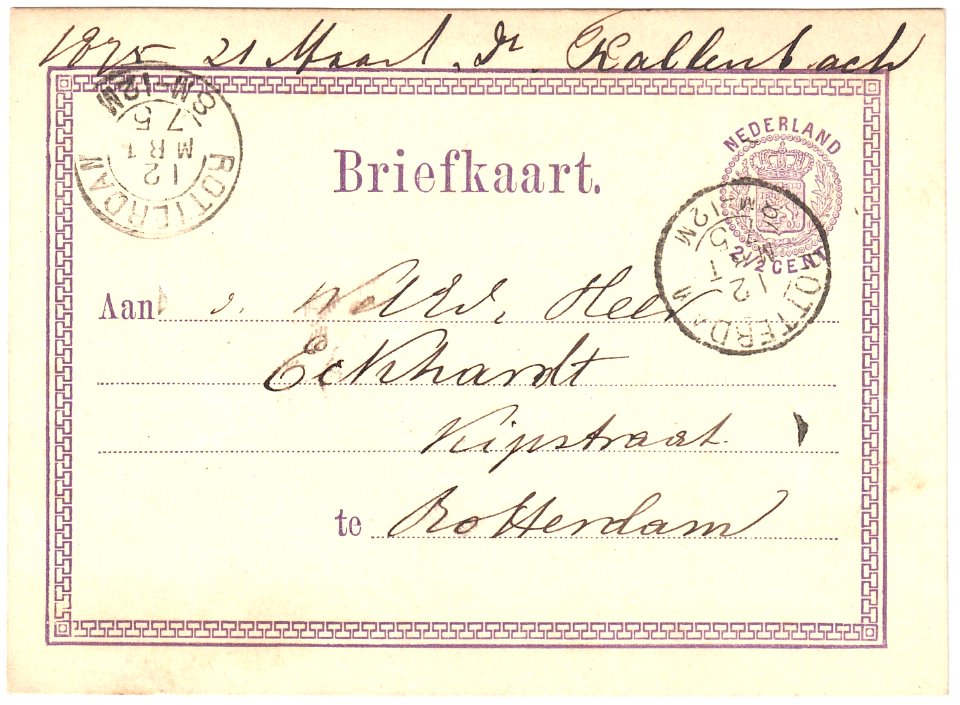 1875 21 Maart. Dr. Kallenbach
ROTTERDAM
21 MRT 75
8M-12M
Briefkaart.
NEDERLAND
2½ CENT
ROTTERDAM
21
12M
Aan d. WelEd. Heer
Eckhardt
Kipstraat
te Rotterdam